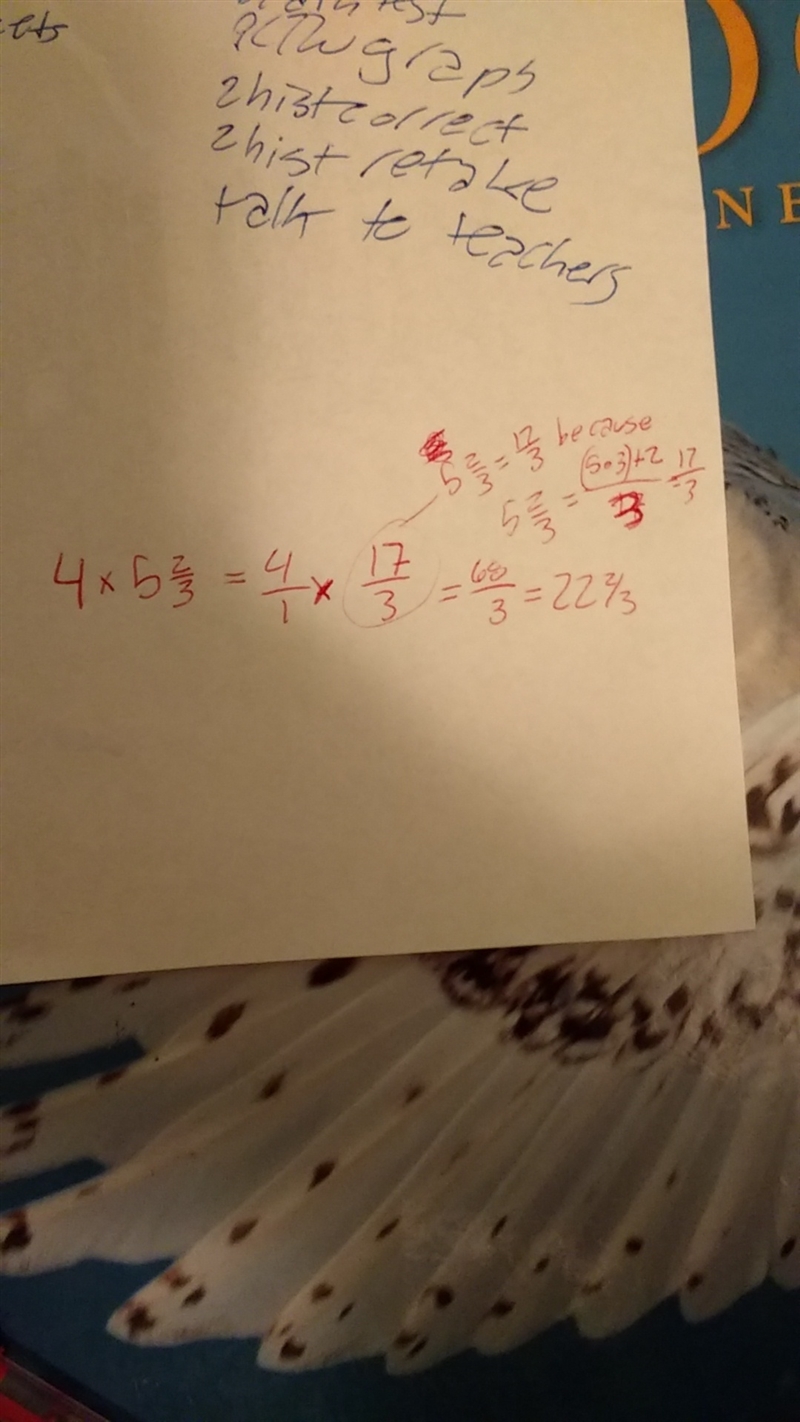 graps
2hist correct
2hist retake
talk to teachers
NE
5 2/3 = 17/3 because
5 2/3 = (5•3)+2/3 = 17/3
4 × 5 2/3 = 4/1 × 17/3 = 68/3 = 22 2/3